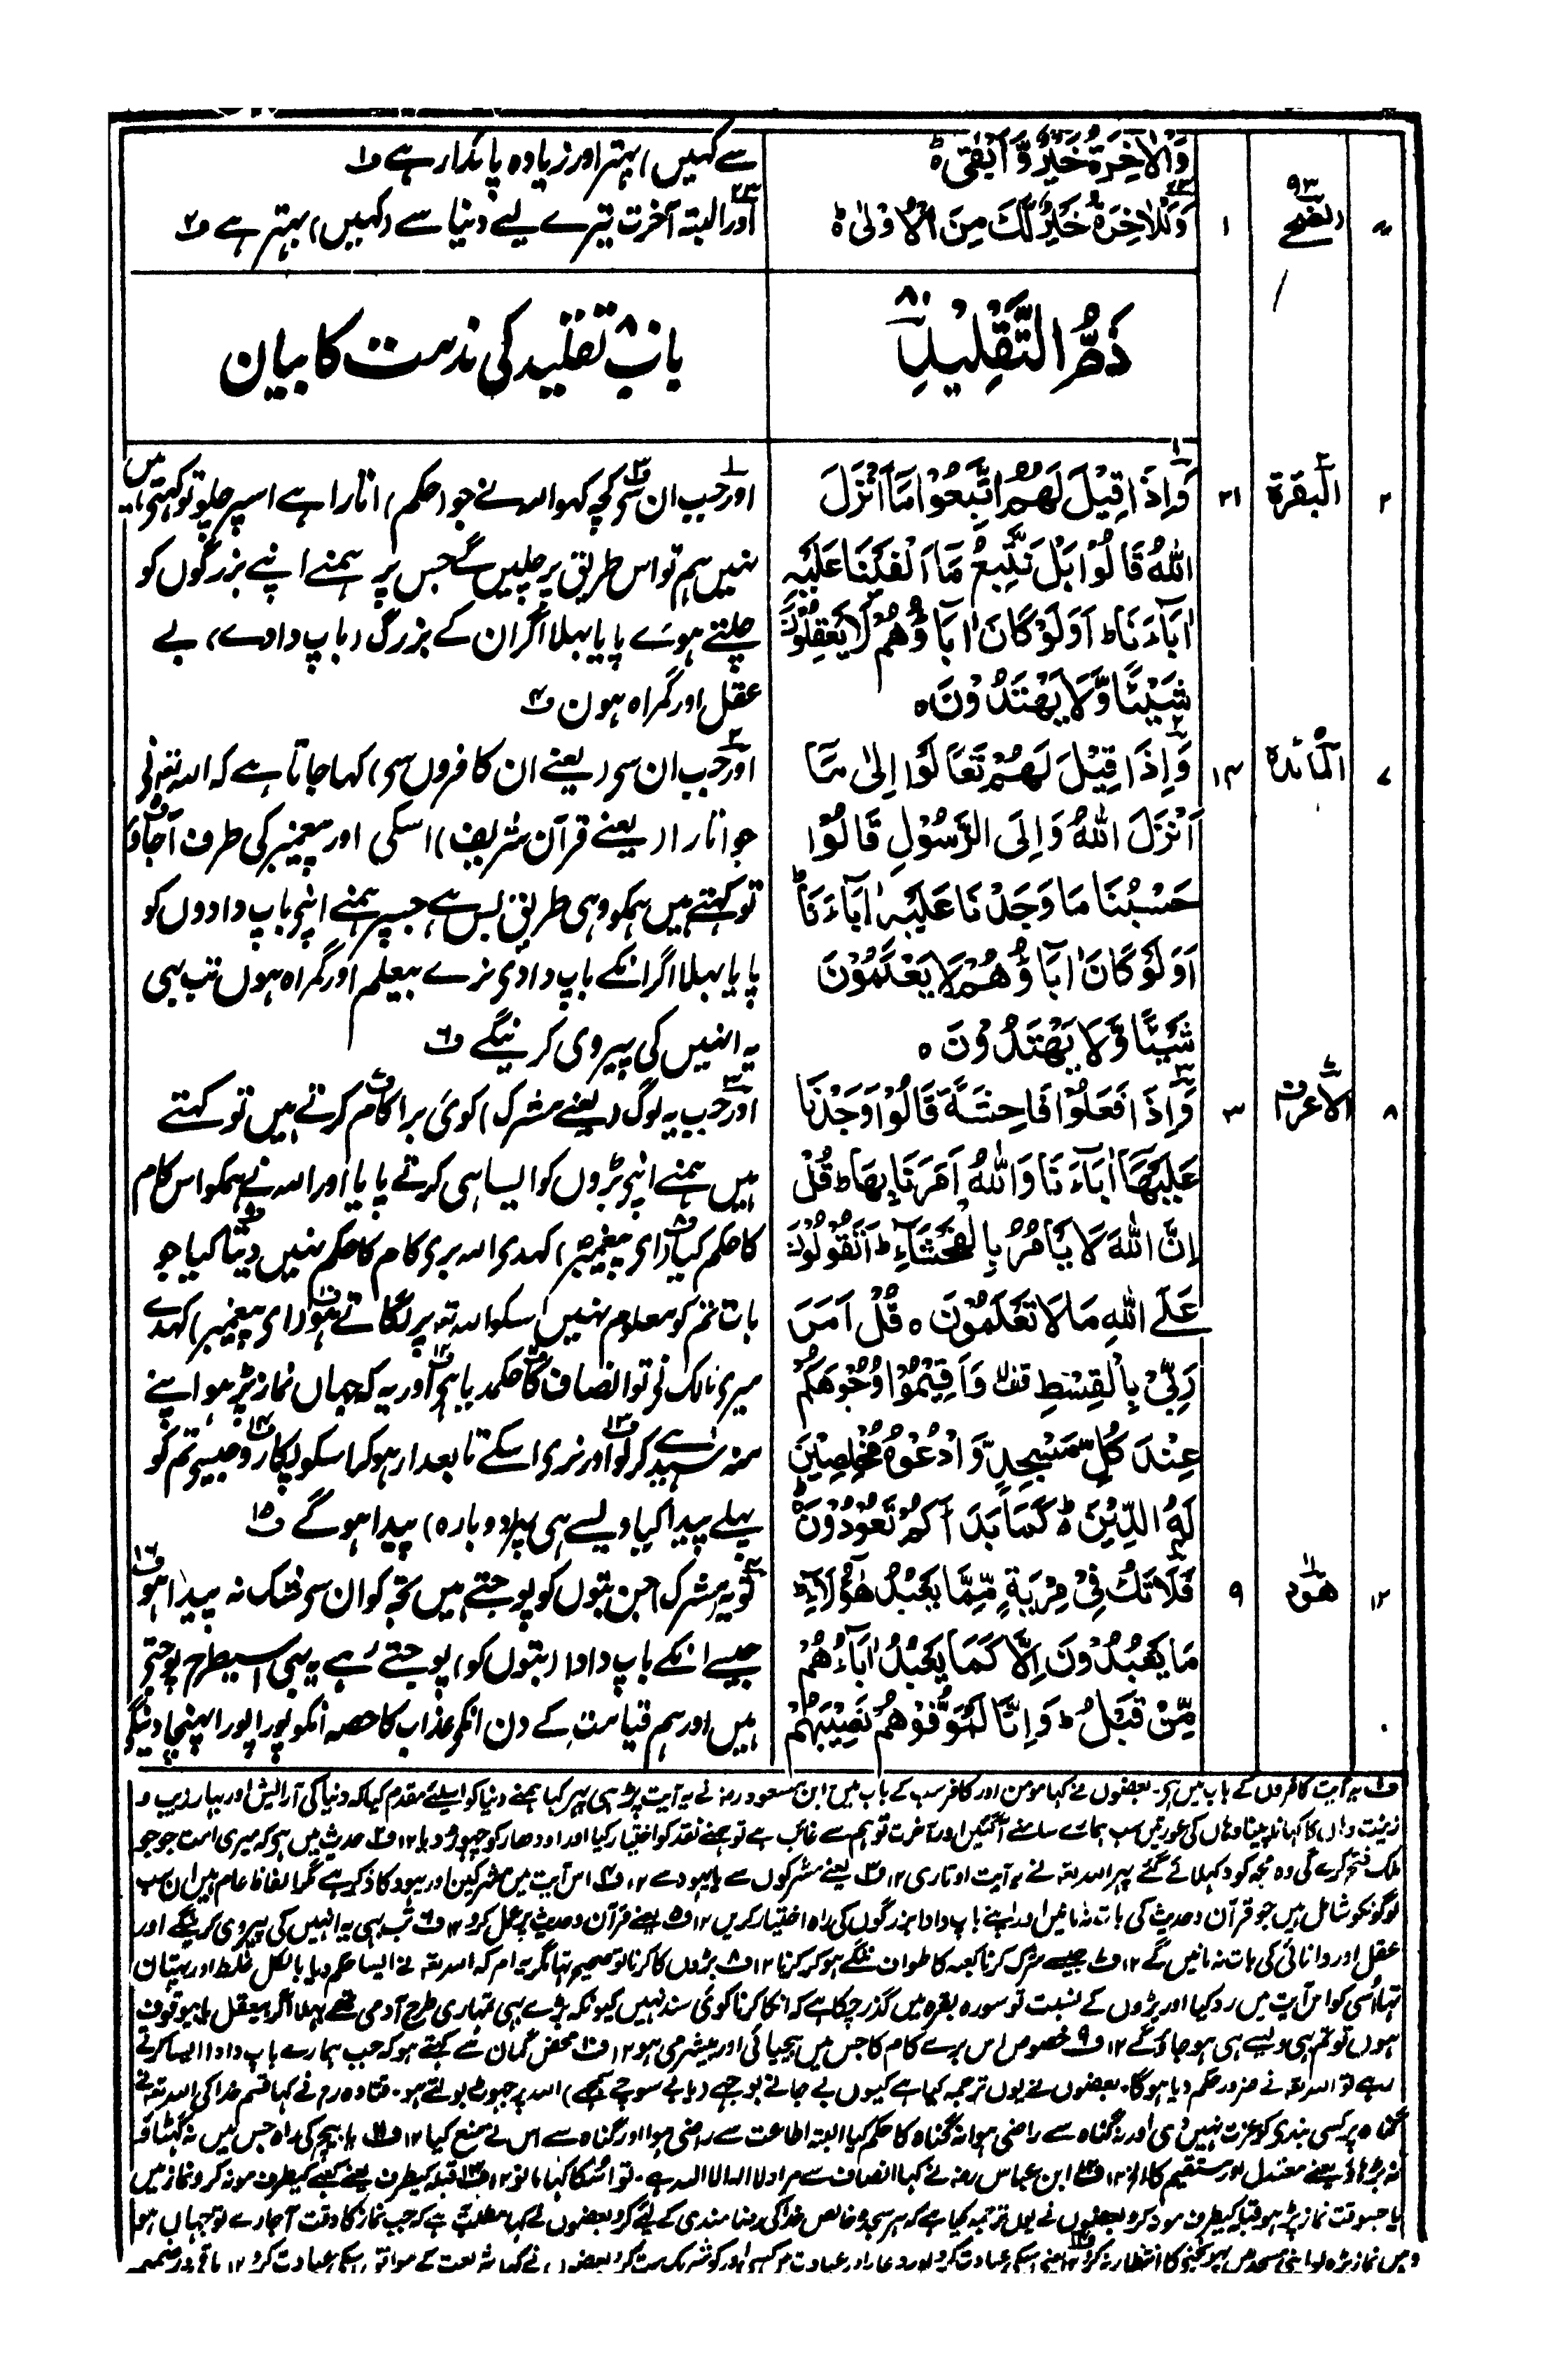 وَالْاٰخِرَةُ خَيْرٌ وَّاَبْقٰى ؕ
سے کہیں) بہتر اور زیادہ پائدار ہے ف۱
۹۳ الضحٰے ۱
وَلَلْاٰخِرَةُ خَيْرٌ لَّكَ مِنَ الْاُوْلٰى ؕ
اور البتہ آخرت تیرے لیے دنیا سے (کہیں) بہتر ہے ف۲
ذَمُّ التَّقْلِيْدِ ۸۰
باب ۸۰ تقلید کی مذمت کا بیان
۲ البقرة ۲۱
وَاِذَا قِيْلَ لَهُمُ اتَّبِعُوْا مَا اَنْزَلَ
اللّٰهُ قَالُوْا بَلْ نَتَّبِعُ مَا اَلْفَيْنَا عَلَيْهِ
اٰبَآءَنَا ؕ اَوَلَوْ كَانَ اٰبَاؤُهُمْ لَا يَعْقِلُوْنَ
شَيْئًا وَّلَا يَهْتَدُوْنَ ه
اور جب ان سے ف۳ کچھ کہو اللہ نے جو (حکم) اتارا ہے اسپر چلو تو کہتے ہیں
نہیں ہم تو اس طریق پر چلیں گے جس پر ہمنے اپنے بزرگوں کو
چلتے ہوئے پایا بہلا اگر ان کے بزرگ (باپ دادے) بے
عقل اور گمراہ ہون ف۴
۷ المائدة ۱۴
وَاِذَا قِيْلَ لَهُمْ تَعَالَوْا اِلٰى مَا
اَنْزَلَ اللّٰهُ وَاِلَى الرَّسُوْلِ قَالُوْا
حَسْبُنَا مَا وَجَدْنَا عَلَيْهِ اٰبَآءَنَا ؕ
اَوَلَوْ كَانَ اٰبَاؤُهُمْ لَا يَعْلَمُوْنَ
شَيْئًا وَّلَا يَهْتَدُوْنَ ه
اور جب ان سے (یعنے ان کافروں سے) کہا جاتا ہے کہ اللہ تعہ نے
جو اتارا (یعنے قرآن شریف) اسکی اور پیغمبر کی طرف آجاؤ ف۵
تو کہتے ہیں ہمکو وہی طریق بس ہے جسپر ہمنے اپنے باپ دادوں کو
پایا بہلا اگر انکے باپ دادے نرے بیعلم اور گمراہ ہوں تب بہی
یہ انہیں کی پیروی کرینگے ف۶
۸ الاعراف ۳
وَاِذَا فَعَلُوْا فَاحِشَةً قَالُوْا وَجَدْنَا
عَلَيْهَا اٰبَآءَنَا وَاللّٰهُ اَمَرَنَا بِهَا ؕ قُلْ
اِنَّ اللّٰهَ لَا يَاْمُرُ بِالْفَحْشَآءِ ؕ اَتَقُوْلُوْنَ
عَلَى اللّٰهِ مَا لَا تَعْلَمُوْنَ ه قُلْ اَمَرَ
رَبِّيْ بِالْقِسْطِ قف وَاَقِيْمُوْا وُجُوْهَكُمْ
عِنْدَ كُلِّ مَسْجِدٍ وَّادْعُوْهُ مُخْلِصِيْنَ
لَهُ الدِّيْنَ ؕ كَمَا بَدَاَكُمْ تَعُوْدُوْنَ ؕ
اور جب یہ لوگ (یعنے مشرک) کوئی برا کام ف۷ کرتے ہیں تو کہتے
ہیں ہمنے اپنے بڑوں کو ایسا ہی کرتے پایا اور اللہ نے ہمکو اس کام
کا حکم کیا ف۸ (اے پیغمبر) کہدے اللہ برے کام کا حکم نہیں دیتا کیا جو
بات تم کو معلوم نہیں اسکو اللہ تعہ پر لگاتے ہو ف۱۰ (اے پیغمبر) کہدے
میرے مالک نے تو انصاف کا حکم دیا ہے اور یہ کہ جہاں نماز پڑہو اپنے
منہ سیدہے کر لو ف۱۳ اور نرے اسکے تابعدار ہو کر اسکو پکارو ف۱۴ جیسے تم کو
پہلے پیدا کیا ویسے ہی پہر (دوبارہ) پیدا ہو گے ف۱۵
۱۲ هود ۹
فَلَا تَكُ فِيْ مِرْيَةٍ مِّمَّا يَعْبُدُ هٰؤُلَآءِ ؕ
مَا يَعْبُدُوْنَ اِلَّا كَمَا يَعْبُدُ اٰبَآؤُهُمْ
مِّنْ قَبْلُ ؕ وَاِنَّا لَمُوَفُّوْهُمْ نَصِيْبَهُمْ
تو یہ مشرک جن بتوں کو پوجتے ہیں تجہ کو ان سے شک نہ پیدا ہو ف۱۶
جیسے انکے باپ دادا (بتوں کو) پوجتے رہے یہ بہی اسیطرح پوجتے
ہیں اور ہم قیامت کے دن انکے عذاب کا حصہ انکو پورا پورا پہنچا دینگے
ف۱ یہ آیت کافروں کے باب میں ہے۔ بعضوں نے کہا مومن اور کافر سب کے باب میں ابن مسعود رضہ نے یہ آیت پڑہی پہر کہا ہمنے دنیا کو اسلئے مقدم کیا کہ دنیا کی آرائیش اور بہار زیب و
زینت دانہ کا کہانا پینا وہاں کی عورتیں سب ہمارے سامنے آگئیں اور آخرت تو ہم سے غائب ہے تو ہمنے نقد کو اختیار کیا اور اودھار کو چہوڑ دیا ۱۲ ف۲ حدیث میں ہے کہ میری امت جو جو
ملک فتح کرے گی وہ مجہ کو دکہلائے گئے پہر اللہ تعہ نے یہ آیت اوتاری ۱۲ ف۳ یعنے مشرکوں سے یا یہود سے ۱۲ ف۴ اس آیت میں مشرکین اور یہود کا ذکر ہے مگر الفاظ عام ہیں ان سب
لوگونکو شامل ہیں جو قرآن و حدیث کی بات نہ مانیں اور اپنے باپ دادا بزرگوں کی راہ اختیار کریں ۱۲ ف۵ یعنے قرآن و حدیث پر عمل کرو ۱۲ ف۶ تب بہی یہ انہیں کی پیروی کرینگے اور
عقل اور دانائی کی بات نہ مانیں گے ۱۲ ف۷ جیسے شرک کرنا کعبہ کا طواف ننگے ہو کر کرنا ۱۲ ف۸ بڑوں کا کرنا تو صحیح تہا مگر یہ امر کہ اللہ تعہ نے ایسا حکم دیا بالکل غلط اور بہتان
تہا اسی کو اس آیت میں رد کیا اور بڑوں کے نسبت تو سورہ بقرہ میں گذر چکا ہے کہ انکا کرنا کوئی سند نہیں کیونکہ بڑے بہی تمہاری طرح آدمی تہے بہلا اگر بیعقل یا بیوقوف
ہوں تو تم بہی ویسے ہی ہو جاؤ گے ۱۲ ف۹ خصوص اس برے کام کا جس میں بیحیائی اور بیشرمی ہو ۱۲ ف۱۰ محض گمان سے کہتے ہو کہ جب ہمارے باپ دادا ایسا کرتے
رہے تو اللہ تعہ نے ضرور حکم دیا ہوگا۔ بعضوں نے یوں ترجمہ کیا ہے کیوں بے جانے بوجہے (یا بے سوچے سمجہے) اللہ پر جہوٹ بولتے ہو۔ قتادہ رح نے کہا قسم خدا کی اللہ تعہ نے
گناہ پر کسی بندے کو عزت نہیں دی اور نہ گناہ سے راضی ہوا نہ گناہ کا حکم کیا البتہ اطاعت سے راضی ہوا اور گناہ سے اس نے منع کیا ۱۲ ف۱۱ یا بیچ کی راہ جس میں نہ گہٹاؤ
نہ بڑہاؤ یعنے معتدل اور مستقیم ۱۲ ف۱۲ ابن عباس رضہ نے کہا انصاف سے مراد لا الہ الا اللہ ہے۔ تو اسکا کہا مانو ۱۲ ف۱۳ قبلہ کیطرف یعنے کعبے کیطرف مونہ کرو نماز میں
یا جسوقت نماز پڑہو قبلہ کیطرف مونہ کرو بعضوں نے یوں ترجمہ کیا ہے کہ ہر سجدہ خالص خدا کی رضا مندی کے لئے کرو بعضوں نے کہا مطلب یہ ہے کہ جب نماز کا وقت آجاوے تو جہاں ہو
وہیں نماز پڑہ لو اپنی مسجد میں پہونچنے کا انتظار نہ کرو ۱۲ یعنی اسکی عبادت کرو اور دعا اور عبادت میں کسی اور کو شریک مت کرو بعضوں نے کہا شریعت کے موافق اسکی عبادت کرو ۱۲